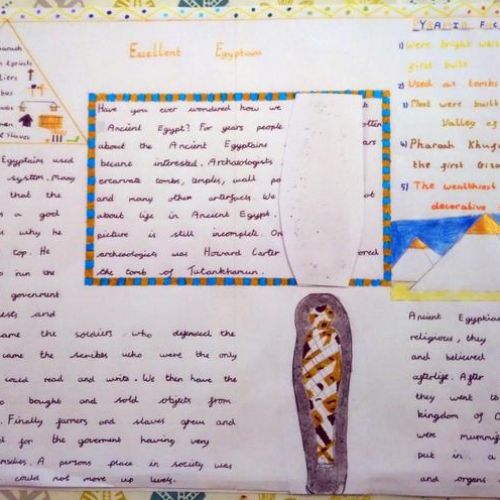 Excellent Egyptians
Have you ever wondered how we
Ancient Egypt? For years people
about the Ancient Egyptains
became interested. Archaeologists
excarvate tombs, temples, wall
and many other artefacts. We
about life in Ancient Egypt.
picture is still incomplete. On
archaeologists was Howard Carter
the tomb of Tutankhamun.
Egyptians used
system. Many
that the
a good
why he
top. He
run the
goverment
and
came the soldiers who defended the
came the scribes who were the only
could read and write. We then have the
bought and sold objects from
Finally farmers and slaves grew and
for the goverment having very
A persons place in society was
could not move up levels.
PYRAMID
1) Were bright
first built
2) Used as tombs
3) Most were built
Valley of
4) Pharoah
the first
5) The wealthiest
decorative
Ancient Egyptian
religious, they
and believed
afterlife. After
they went to
kingdom of O
were mummifi
put in a
and organs